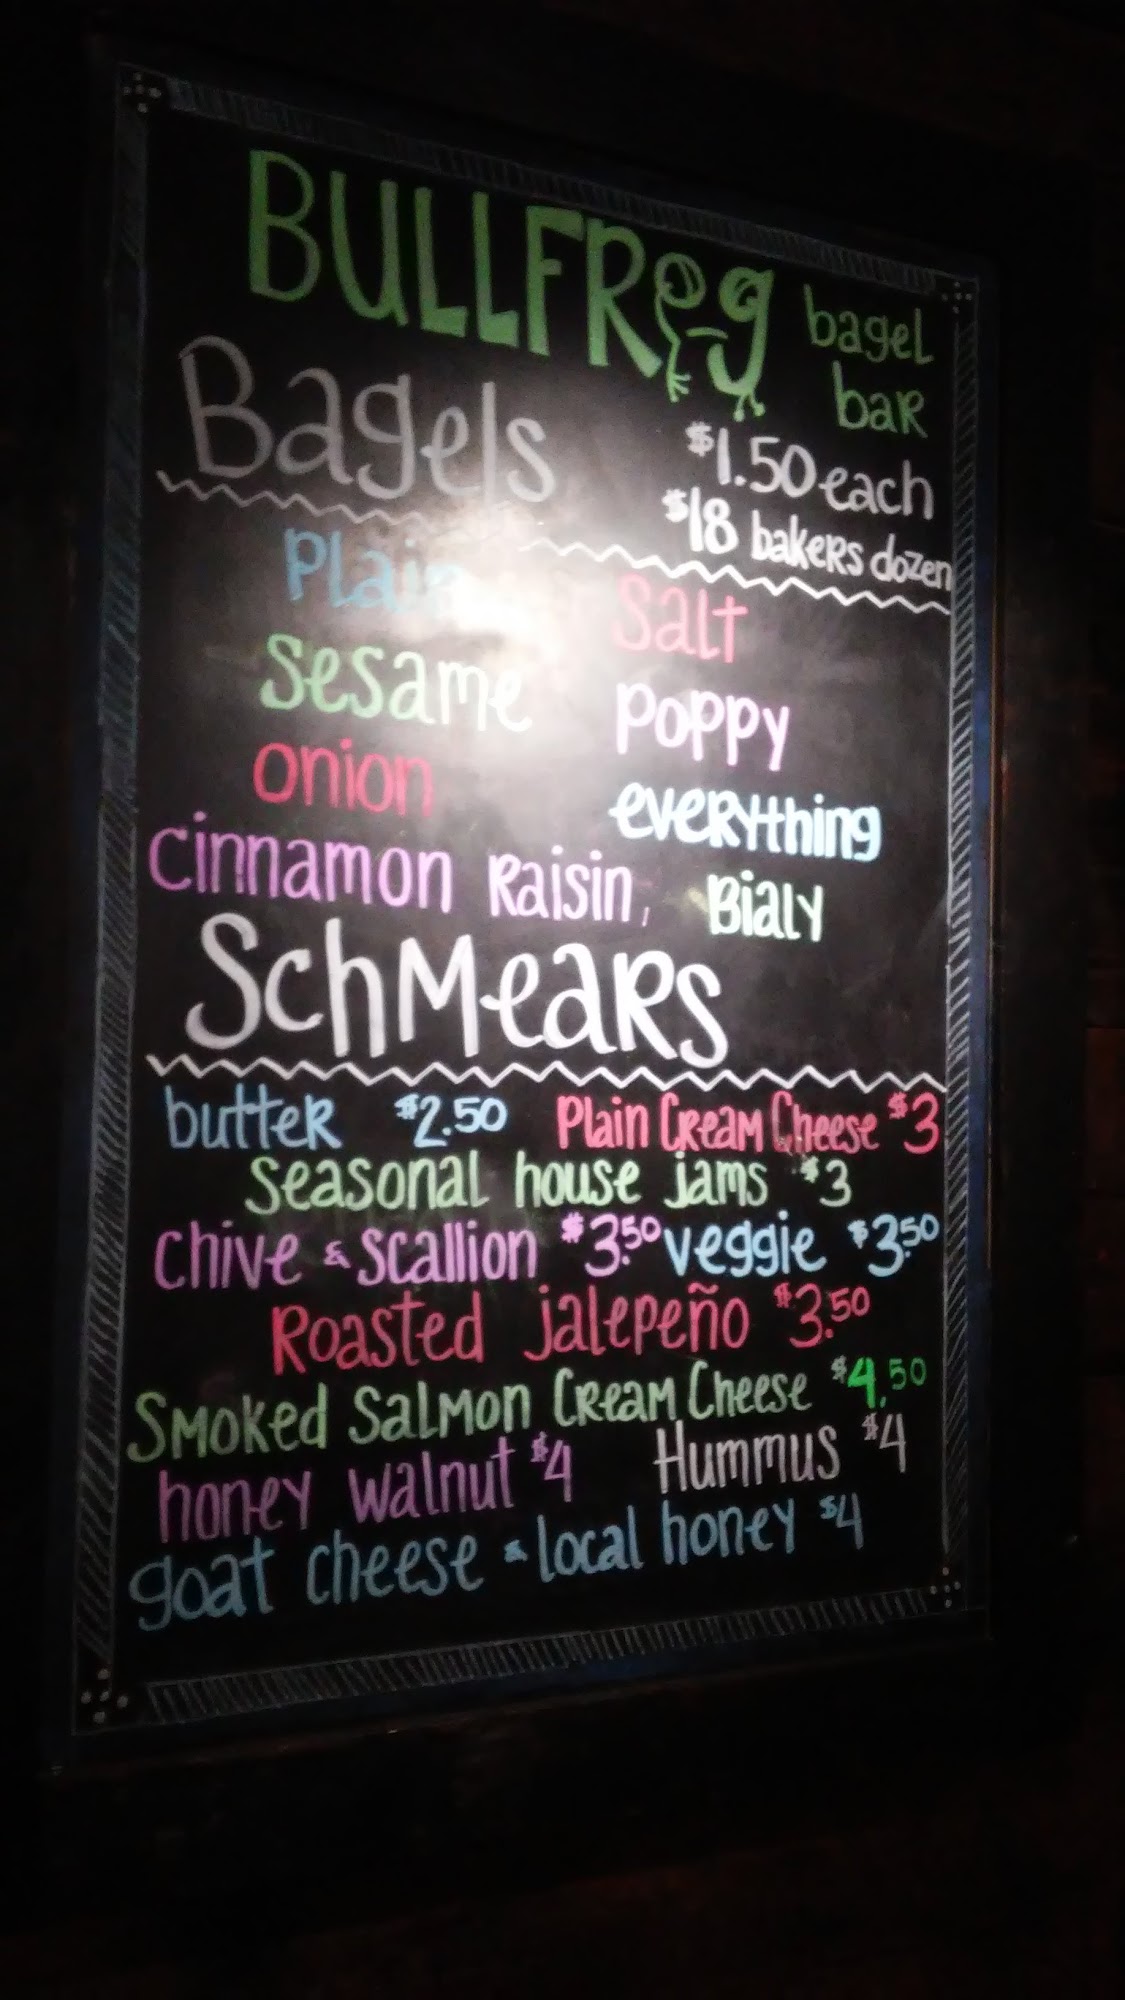 BULLFROg bagel bar
Bagels $1.50 each
$18 bakers dozen
Plain Salt
Sesame Poppy
onion everything
cinnamon Raisin, Bialy
Schmears
butter $2.50 Plain Cream Cheese $3
Seasonal house jams $3
chive & scallion $3.50 veggie $3.50
Roasted jalepeño $3.50
Smoked Salmon Cream Cheese $4.50
honey walnut $4 Hummus $4
goat cheese & local honey $4